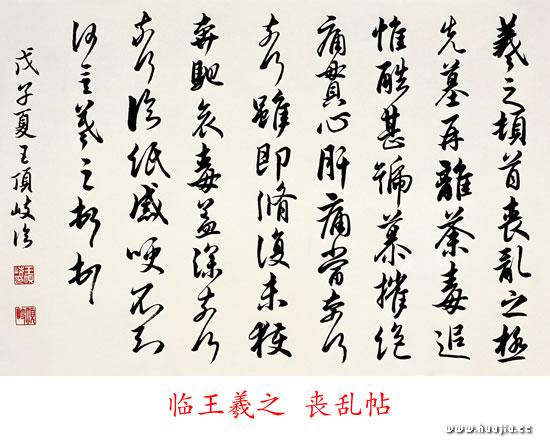 羲之頓首喪亂之極
先墓再離荼毒追
惟酷甚號慕摧絕
痛貫心肝痛當奈何
奈何雖即脩復未獲
奔馳哀毒益深奈何
奈何臨紙感哽不知
何言羲之頓首頓首
戊子夏王頂岐臨
临王羲之 丧乱帖
www.huajia.cc